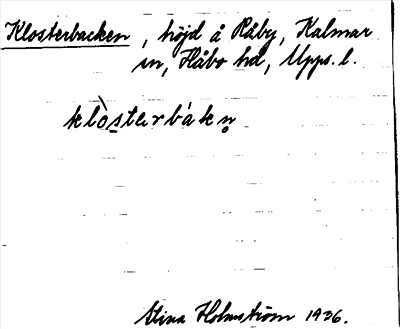 Klosterbacken, höjd å Råby, Kalmar
sn, Håbo hd, Upps. l.
klòsterbákn̥
Stina Holmström 1936.